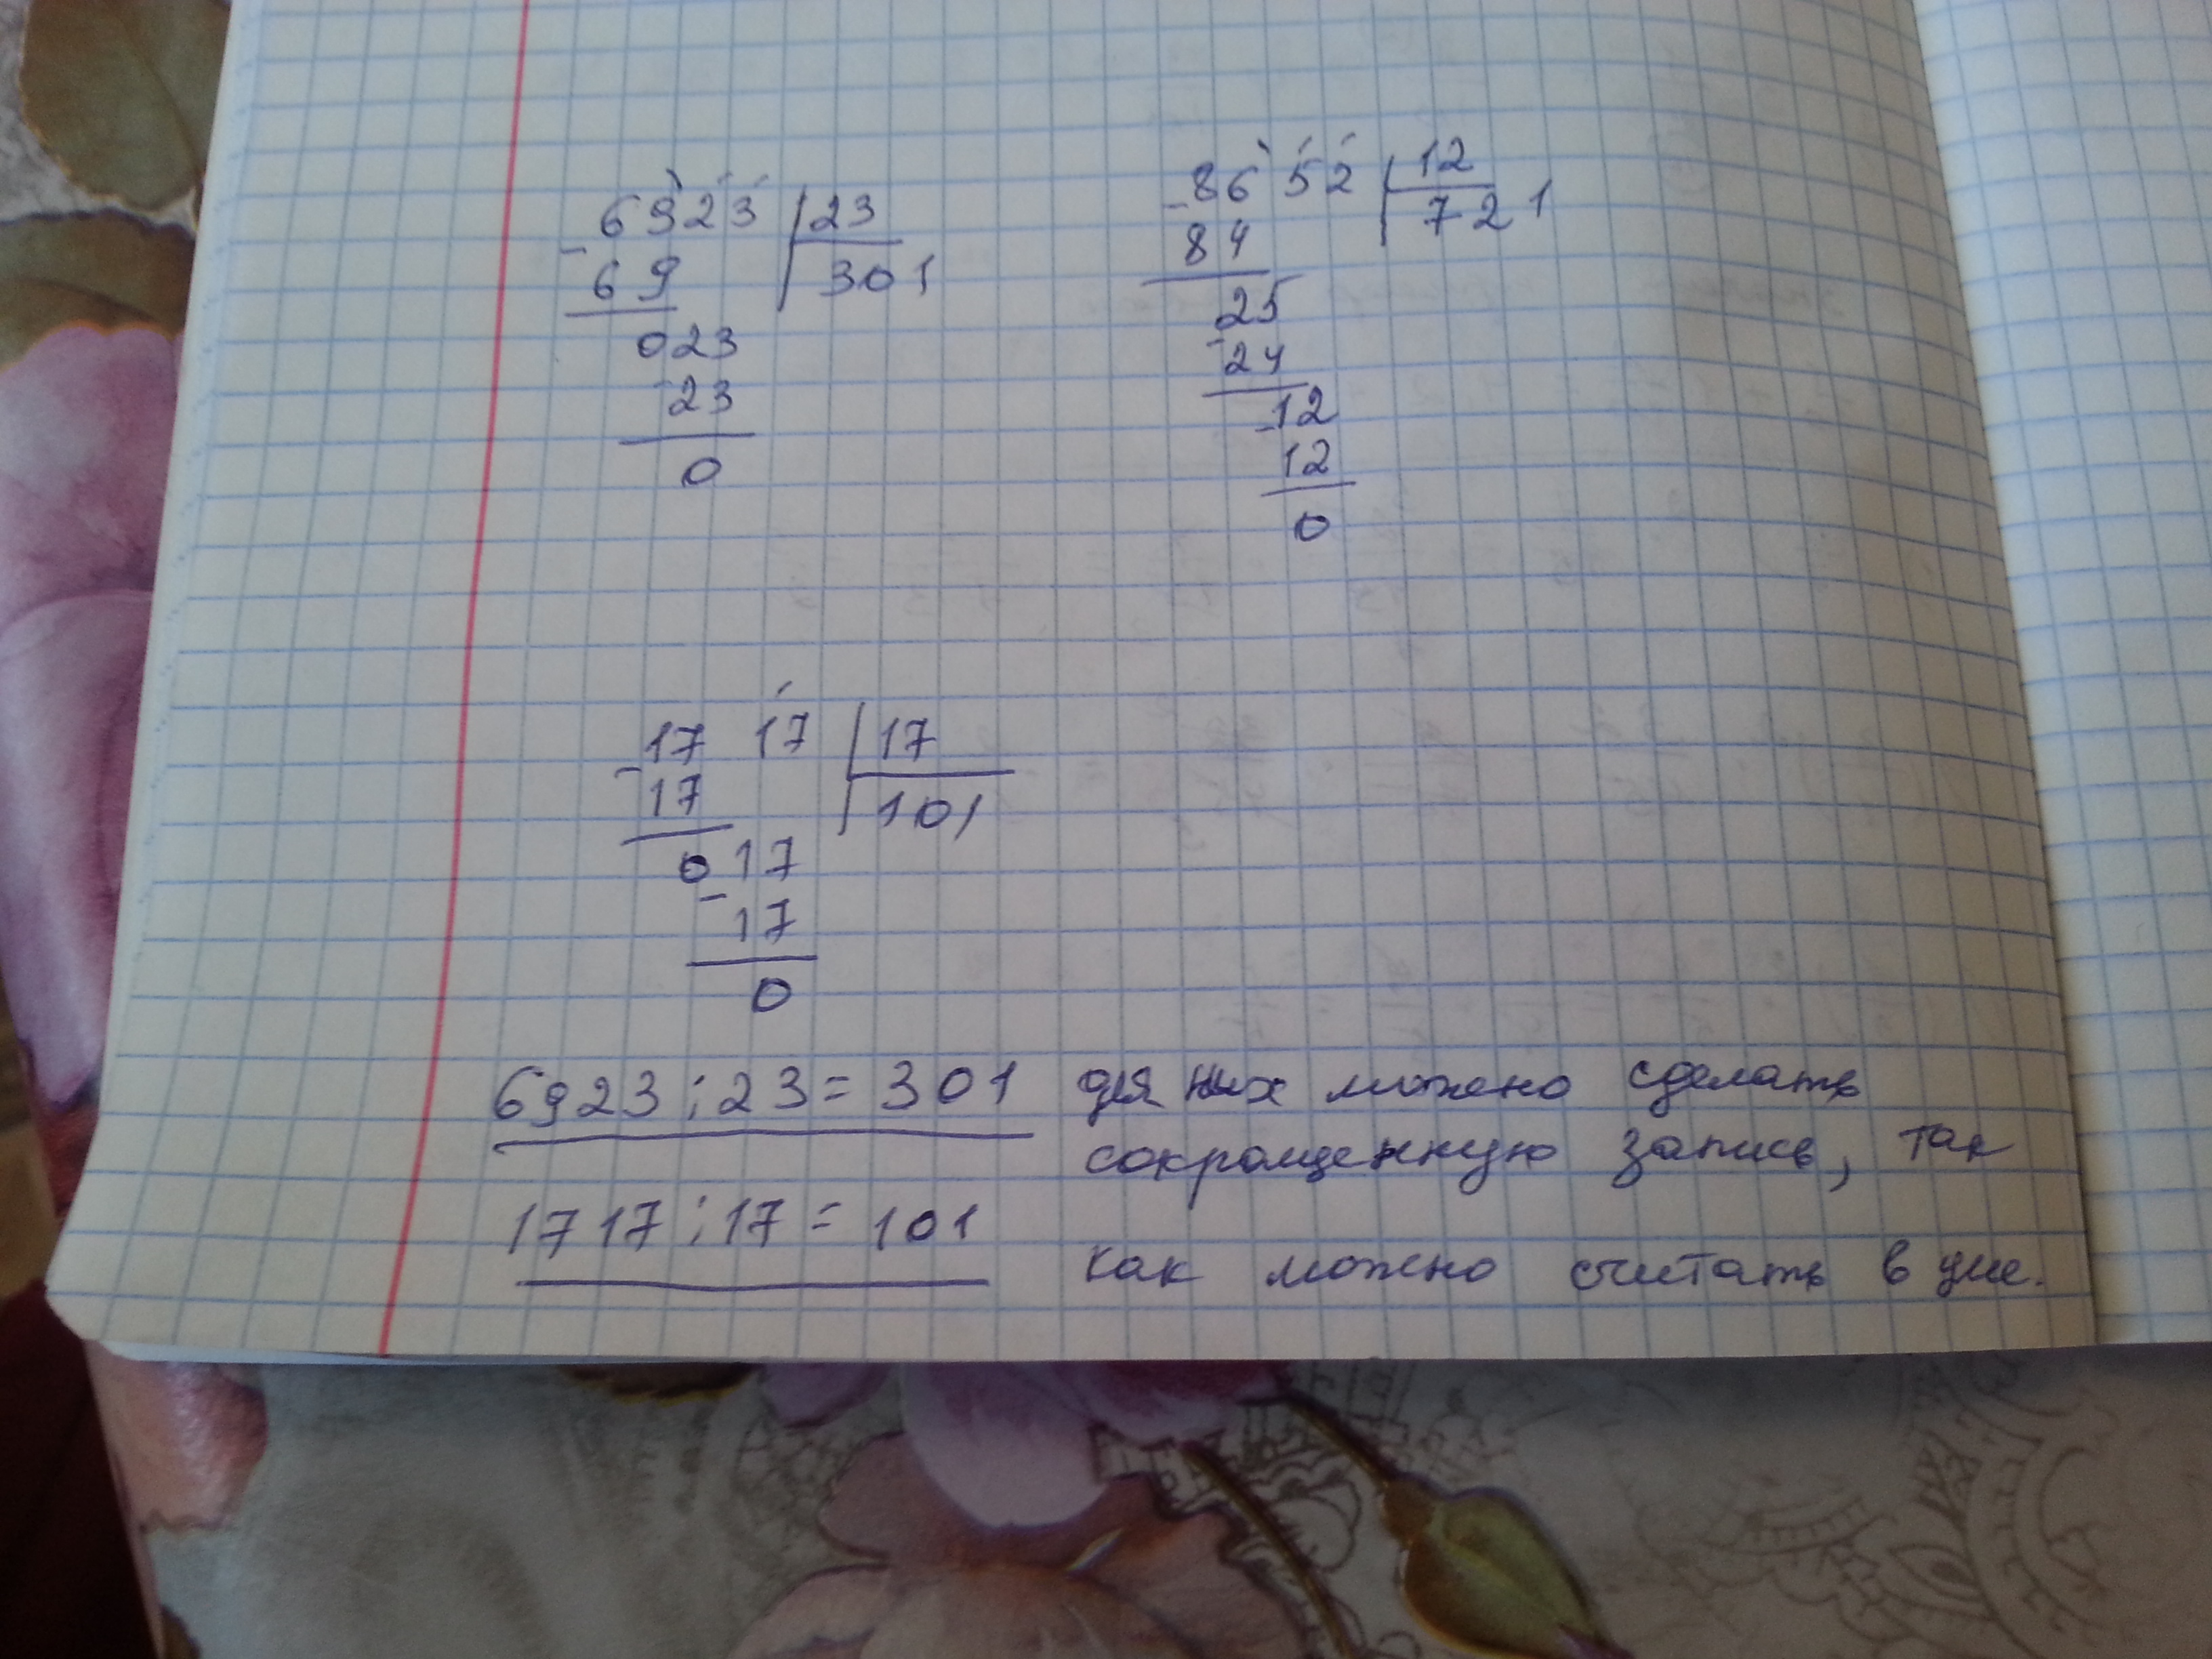 6923 23
69 301
023
23
0
8652 12
84 721
25
24
12
12
0
1717 17
17 101
017
17
0
6923:23=301 для них можно сделать
сокращенную запись, так
1717:17=101
как можно считать в уме.